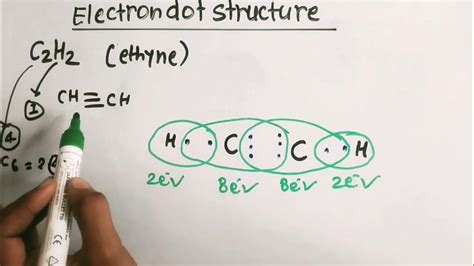 Electron dot structure
C₂H₂ (ethyne)
① CH≡CH
④
H C C H
C6 = 2
2e⁻V 8e⁻V 8e⁻V 2e⁻V